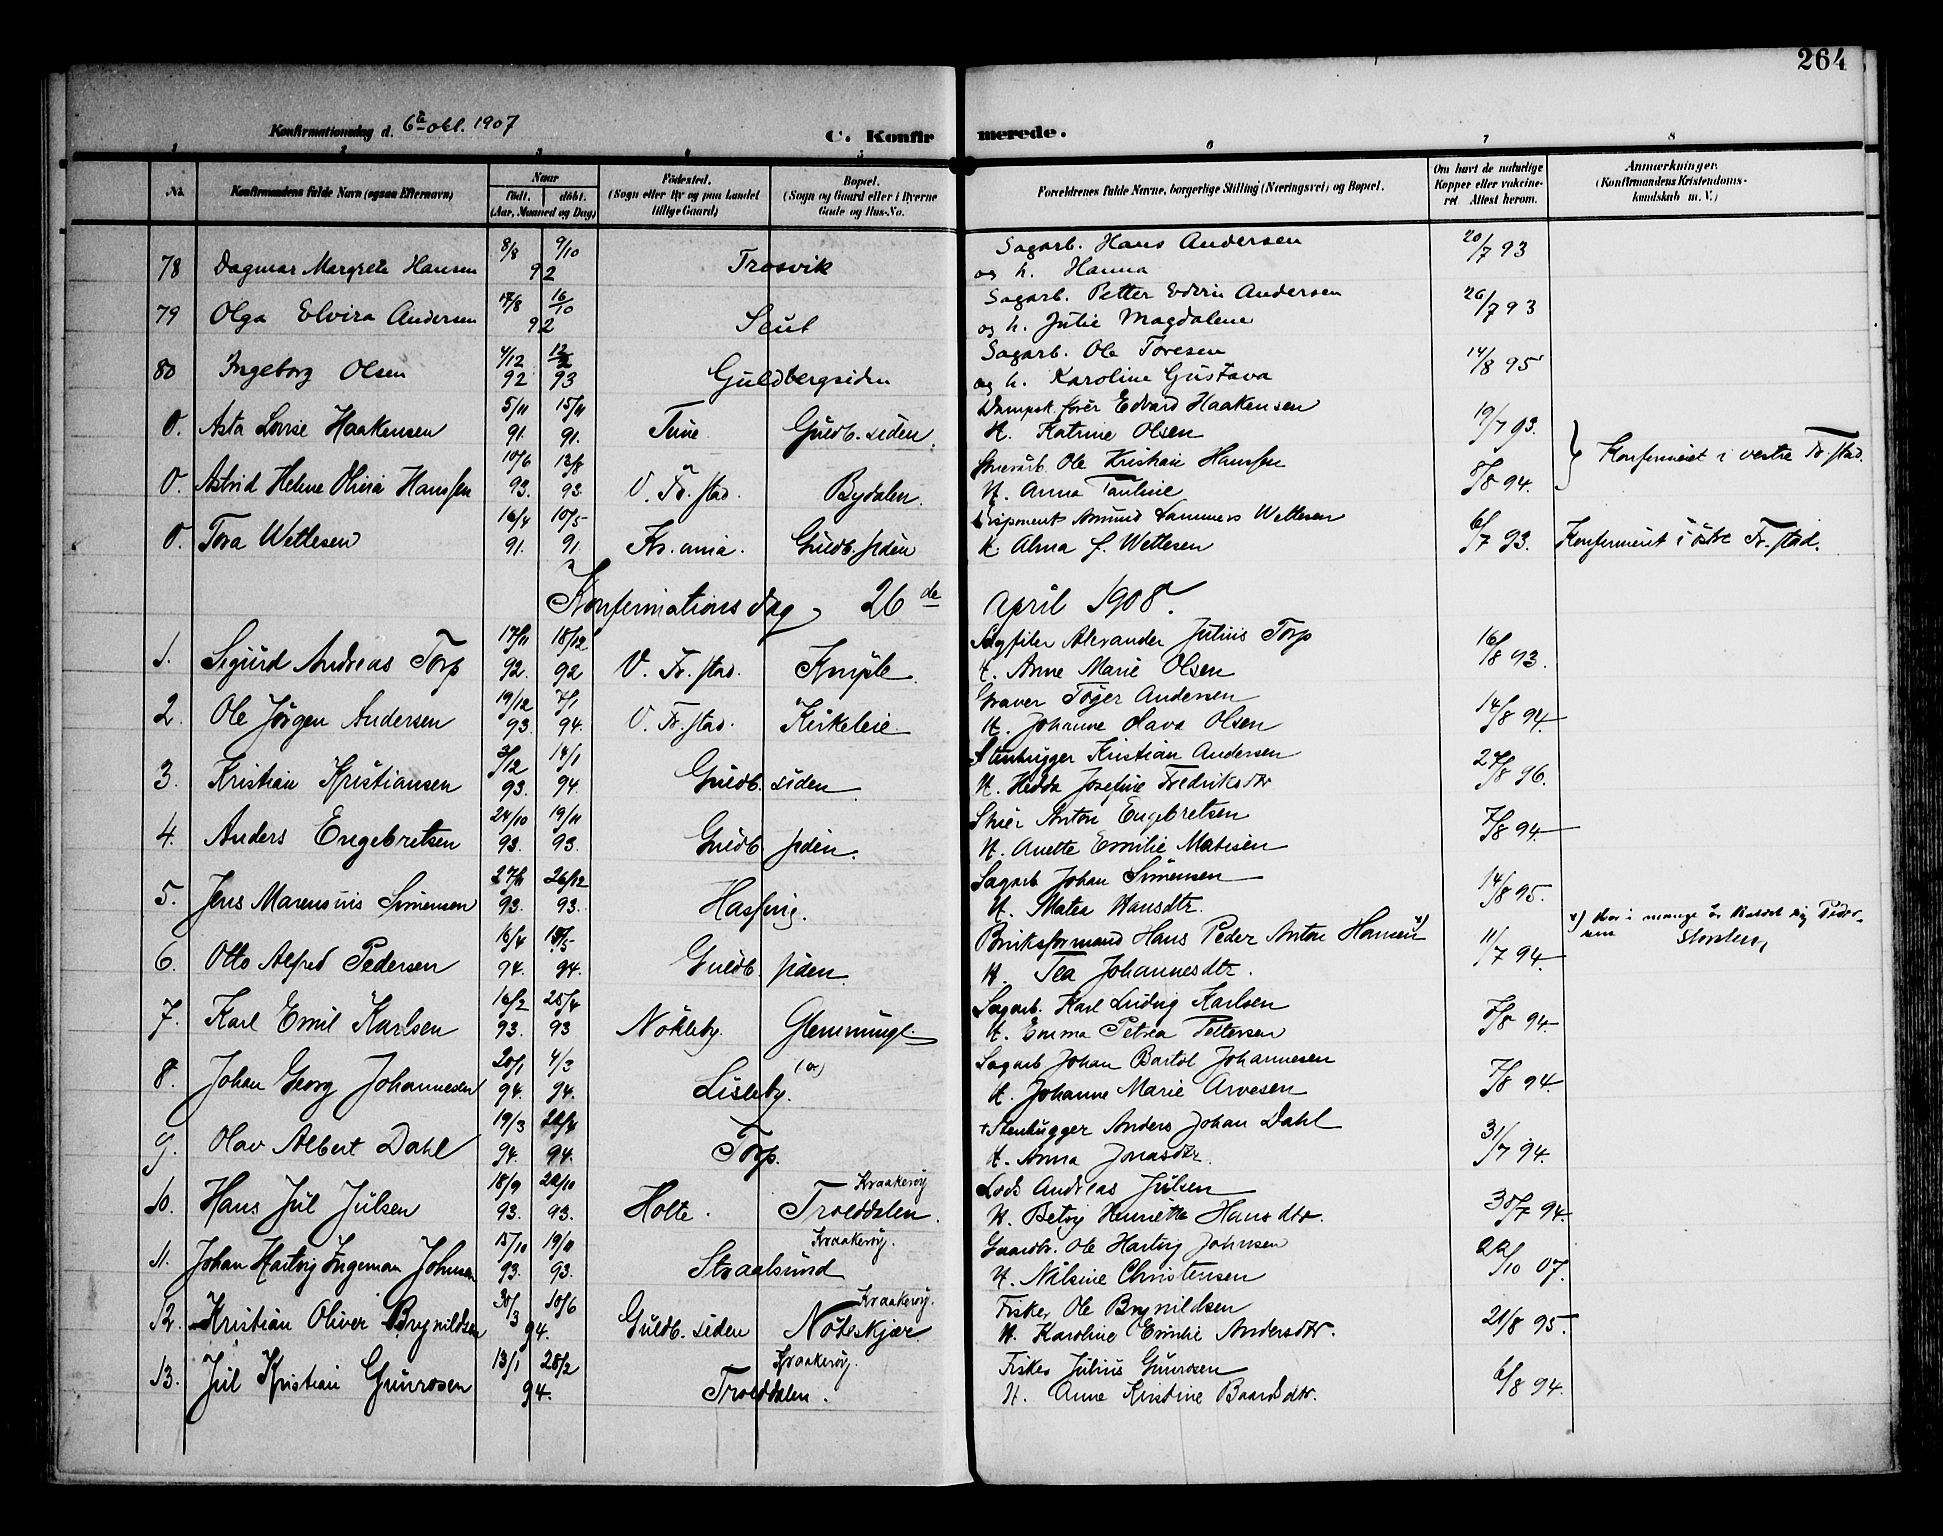 264
Konfirmationsdag d. 6te okt. 1907
C. Konfir merede.
1 2 3 4 5 6 7 8
No. Konfirmandens fulde Navn (ogsaa Efternavn) Naar født. døbt. (Aar, Maaned og Dag) Fødested. (Sogn eller By og paa Landet tillige Gaard) Bopæl. (Sogn og Gaard eller i Byerne Gade og Hus-No. Forældrenes fulde Navne, borgerlige Stilling (Næringsvei) og Bopæl. Om havt de naturlige Kopper eller vakcineret Attest herom. Anmærkninger. (Konfirmandens Kristendomskundskab m. V.)
8/8 9/10 Sagarb. Hans Andersen 20/7 93
78 Dagmar Margrete Hansen 92 Trosvik og h. Hanna
17/8 16/10 Sagarb. Petter Edvin Andersen 26/7 93
79 Olga Elvira Andersen 92 Seut og h. Julie Magdalene
4/12 12/2 Sagarb. Ole Toresen 14/8 95
80 Ingeborg Olsen 92 93 Guldbergsiden og h. Karoline Gustava
5/11 15/11 Dampsk. fører Edvard Haakensen 19/7 93.
0. Asta Lovise Haakensen 91. 91. Tune Guldb. siden. H. Katrine Olsen
Konfirmeret i vestre Fr.stad.
10/6 13/8 Ole Kristian Hanssen 8/8 94.
0. Astrid Helene Olivia Hanssen 93. 93. V. Fr.stad. Bydalen. H. Anna Pauline
16/4 10/5 Disponent Amund Lammers Wettesen 6/7 93.
0. Tora Wettesen 91. 91. Kr.ania. Guldb.siden H. Alma J. Wettesen Konfirmeret i östre Fr.stad.
Konfirmationsdag 26de April 1908.
17/11 18/12 Sagfiler Alexander Julius Torp 16/8 93.
1. Sigurd Andreas Torp 92. 92 V. Fr.stad. Kniple. H. Anne Marie Olsen
19/12 7/1 Graver Töger Andersen 14/8 94
2. Ole Jörgen Andersen 93. 94. V. Fr.stad. Kirkeleie H. Johanne Olava Olsen
3/12 14/1 Stenhugger Kristian Andersen 27/8 96.
3. Kristian Kristiansen 93. 94. Guldb. siden. H. Hedda Josefine Fredriksdtr
24/10 19/11 Anton Engebretsen 7/8 94
4. Anders Engebretsen 93. 93. Guldb. siden. H. Anette Emilie Matisen
27/11 26/12 Sagarb Johan Simensen 14/8 95.
5. Jens Marensius Simensen 93. 93. H. Matea Hansdtr.
16/4 Bruksformand Hans Peder Anton Hansen x) 11/7 94
x) Har i mange år kaldet sig Pedersen
6. Otto Alfred Pedersen 94. 94. Guldb. siden. H. Tea Johannesdtr.
16/2 25/4 Sagarb. Karl Ludvig Karlsen 8/8 94
7. Karl Emil Karlsen 93. 93 Nökleby. Glemminge H. Emma Petrea Pettersen
20/1 4/3 Sagarb Johan Bartol Johannesen 7/8 94
8. Johan Georg Johannesen 94. 94. Lisleby. H. Johanne Marie Arvesen
19/3 Stenhugger Anders Johan Dahl 31/7 94.
9. Olav Albert Dahl 94. 94. Torp. H. Anna Jonasdtr.
18/9 22/10 Kraakeröy Lods Andreas Julsen 30/7 94.
10. Hans Jul Julsen 93. 93. Holte. Trolddalen. H. Betsy Henriette Hansdtr.
15/10 19/11 Kraakeröy. Gaardbr. Ole Hartvig Johnsen 22/10 07.
11. Johan Hartvig Ingeman Johnsen 93. 93. Straalsund H. Nilsine Christensen
30/3 10/6 Kraakeröy. Fisker Ole Brynildsen 21/8 95.
12. Kristian Oliver Brynildsen 94. Guldb. siden Nöteskjær. H. Karoline Emilie Andersdtr.
13/1 25/2 Kraakeröy. Fisker Julius Gunrosen 6/8 94.
13. Jul Kristian Gunrosen 94. Trolddalen. H. Anne Kristine Baardsdtr.